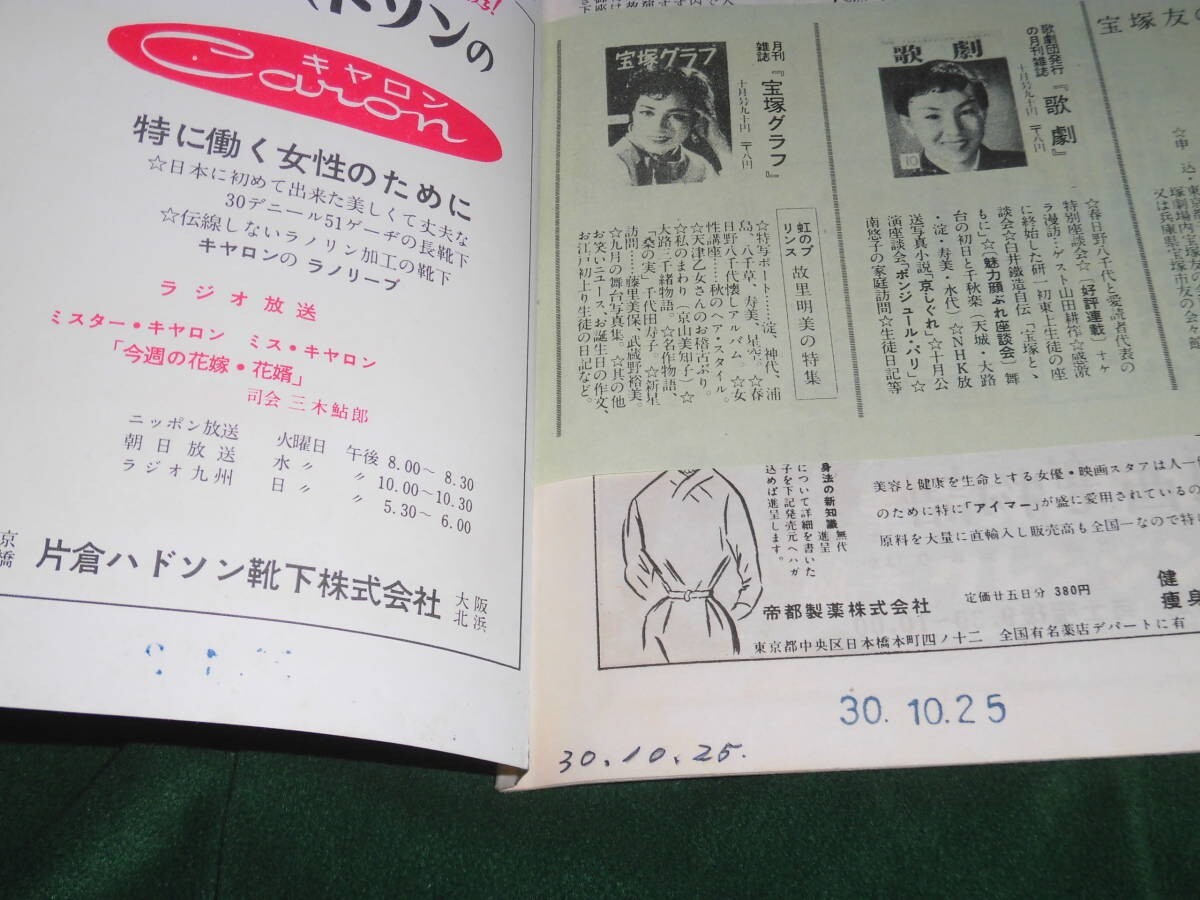 ハドソンの
キヤロン
Caron
特に働く女性のために
☆日本に初めて出来た美しくて丈夫な
30デニール51ゲーヂの長靴下
☆伝線しないラノリン加工の靴下
キヤロンの ラノリーブ
ラジオ放送
ミスター・キヤロン ミス・キヤロン
「今週の花嫁・花婿」
司会 三木鮎郎
ニッポン放送 火曜日 午後 8.00〜 8.30
朝日放送 水〃 〃 10.00〜10.30
ラジオ九州 日〃 〃 5.30〜 6.00
京橋 片倉ハドソン靴下株式会社 大阪北浜
宝塚友の
☆申込・東京
塚劇場内宝塚友の会
又は兵庫県宝塚市友の会
歌劇団発行の月刊雑誌『歌劇』
十月号九十円 〒八円
歌劇
10
☆春日野八千代と愛読者代表の
特別座談会☆(好評連載)すケ
ラ漫訪…ゲスト山田耕筰☆感激
に終始した研一初東上生徒の座
談会☆白井鐵造自伝「宝塚と、
もに」☆(魅力顔ぶれ座談会)舞
台の初日と千秋楽(天城・大路
・淀・寿美・水代)☆NHK放
送写真小説「京しぐれ」☆十月公
演座談会「ボンジュール・パリ」☆
南悠子の家庭訪問☆生徒日記等
月刊雑誌『宝塚グラフ』
十月号九十円 〒八円
宝塚グラフ
虹のプリンス 故里明美の特集
☆特写ポート……淀、神代、浦
島、八千草、寿美、星空。☆春
日野八千代懐しアルバム。☆女
性講座……秋のヘア・スタイル。
☆天津乙女さんのお稽古ぶり。
☆私のまわり(京山美知子)☆
大路三千緒物語。☆名作物語、
「桑の実」千代田寿子。☆新星
訪問……藤里美保、武蔵野裕美。
☆九月の舞台写真集。☆其の他
お笑いニュース、お誕生日の作文、
お江戸初上り生徒の日記など。
身法の新知識 無代進呈
について詳細を書いた
子を下記発売元へハガ
込めば進呈します。
美容と健康を生命とする女優・映画スタアは人一
のために特に「アイマー」が盛に愛用されているの
原料を大量に直輸入し販売高も全国一なので特
帝都製薬株式会社 定価廿五日分 380円
健
痩身
東京都中央区日本橋本町四ノ十二 全国有名薬店デパートに有
30. 10. 25
30. 10. 25.